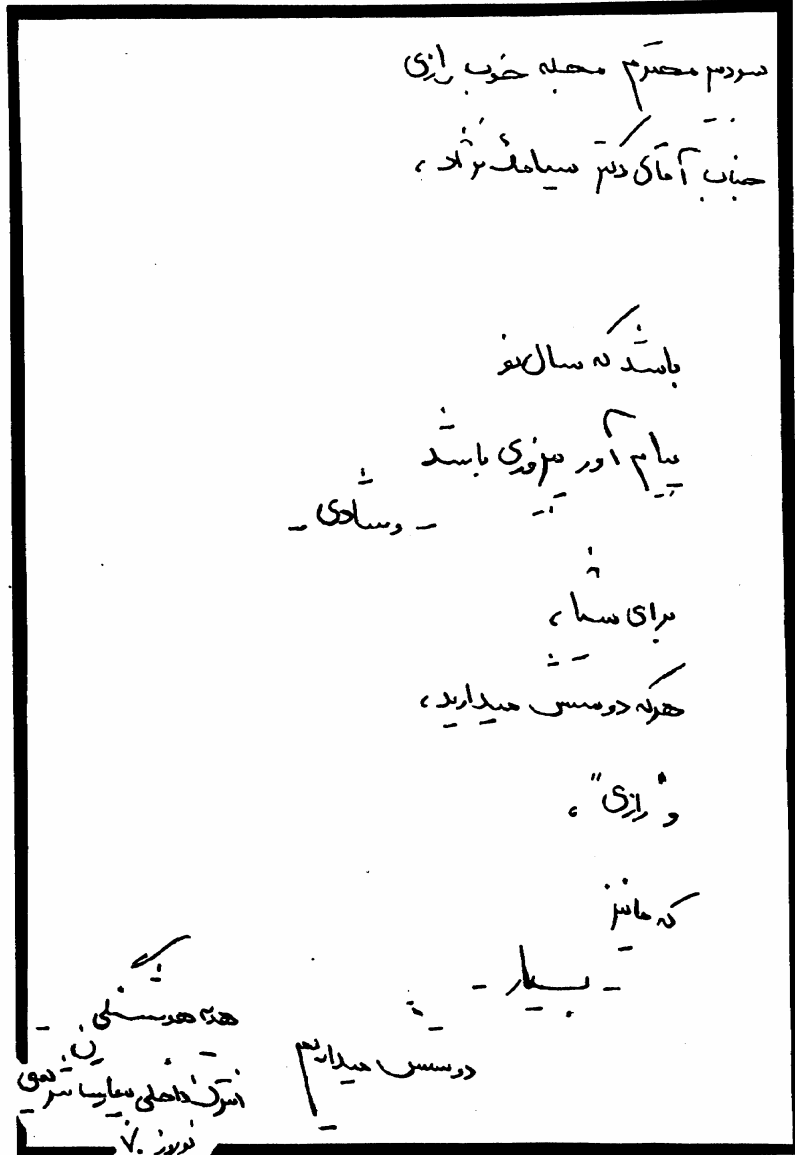 سردبیر محترم مجله خوب رازی
جناب آقای دکتر سیامک نژاد،
باشد که سال نو
پیام آور پیروزی باشد
- و شادی -
برای شما،
هرکه دوستش میدارید،
و "رازی"،
که ما نیز
- بسیار -
دوستش میداریم
هوشنگی
انترن داخلی بیمارستان
نوروز ۷۰